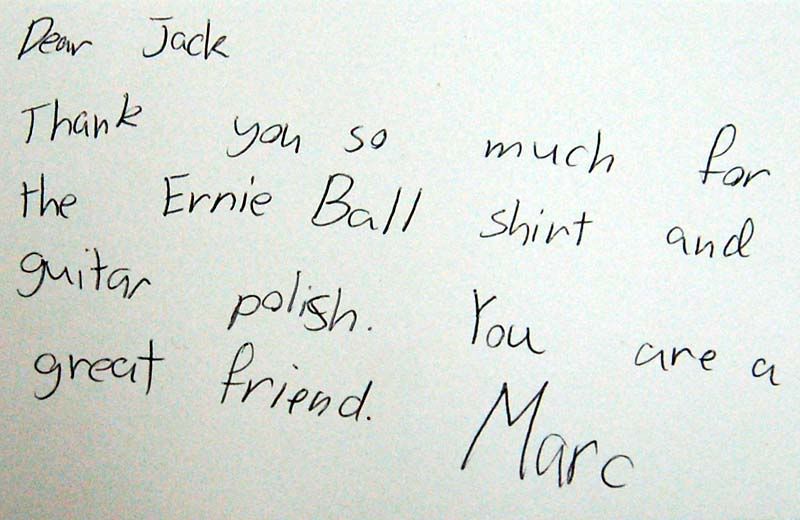 Dear Jack
Thank you so much for
the Ernie Ball shirt and
guitar polish. You are a
great friend.
Marc